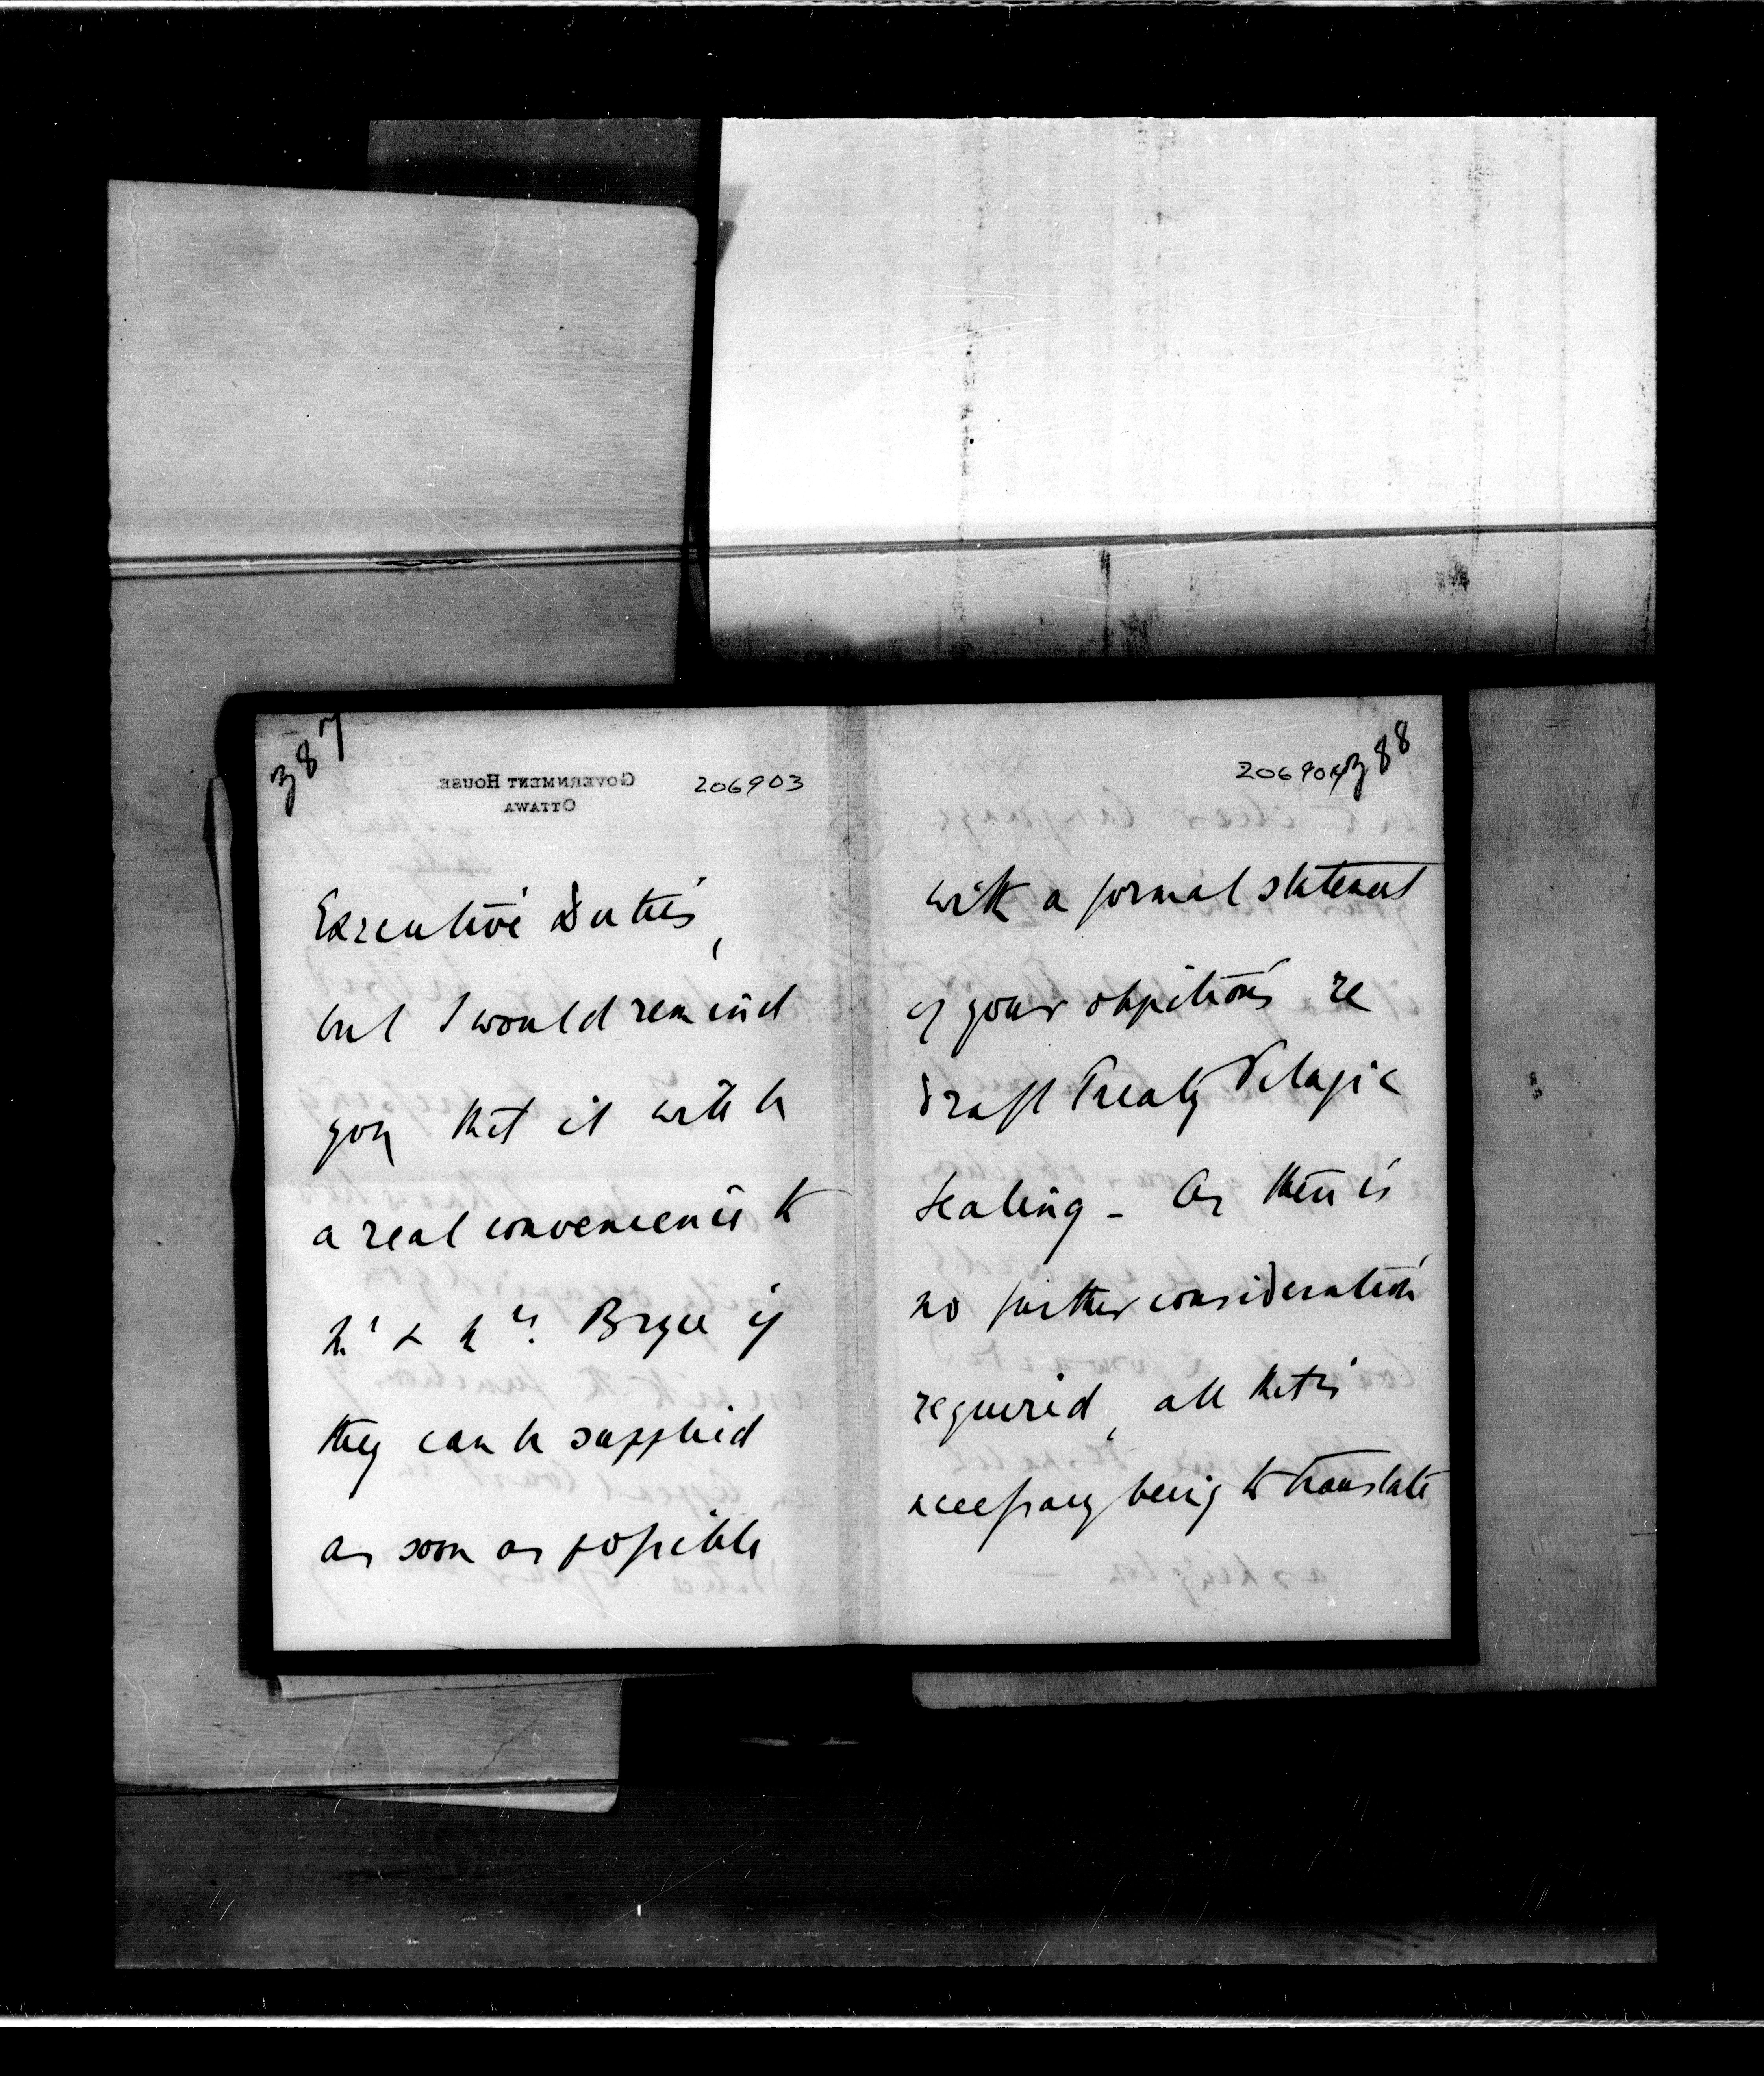 387
GOVERNMENT HOUSE
OTTAWA
206903
Executive Duties,
but I would remind
you that it will be
a real convenience to
Mr & Mrs. Bryce if
they can be supplied
as soon as possible
206904
388
with a formal statement
of your objections re
Draft Treaty Pelagic
Sealing - As there is
no further consideration
required, all that is
necessary being to translate